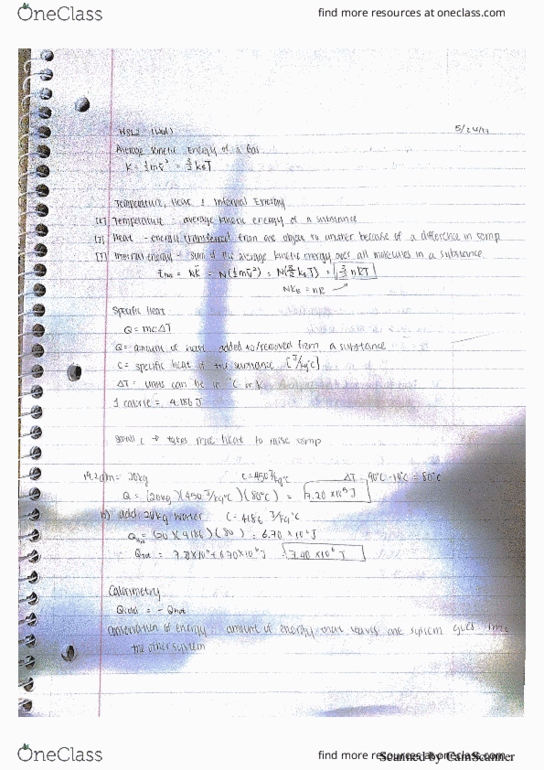 OneClass
find more resources at oneclass.com
5/24/17
Average Kinetic Energy of a Gas
K = ½mv̄² = 3/2 k_BT
Temperature, Heat & Internal Energy
Temperature: average kinetic energy of a substance
Heat - energy transferred from one object to another because of a difference in temp
Internal energy - sum of the average kinetic energy over all molecules in a substance
= NK̄ = N(½mv̄²) = N(3/2 k_BT) = 3/2 nRT
Nk_B = nR
Specific Heat
Q = mcΔT
Q = amount of heat added to/removed from a substance
C = specific heat of the substance [J/kg°C]
ΔT = units can be in °C or K
1 calorie = 4.186 J
small c → takes heat to raise temp
m = 20kg C = 450 J/kg°C ΔT 90°C - 10°C = 80°C
Q = (20kg)(450 J/kg°C)(80°C) = 7.20 x10⁵ J
b) add 20kg water C = 4186 J/kg°C
= (20)(4186)(80) = 6.70 x10⁶ J
= 7.40 x10⁶ J
Calorimetry
Qcold = -Qhot
Conservation of energy: amount of energy that leaves one system goes into
the other system
OneClass
find more resources at oneclass.com
Scanned by CamScanner